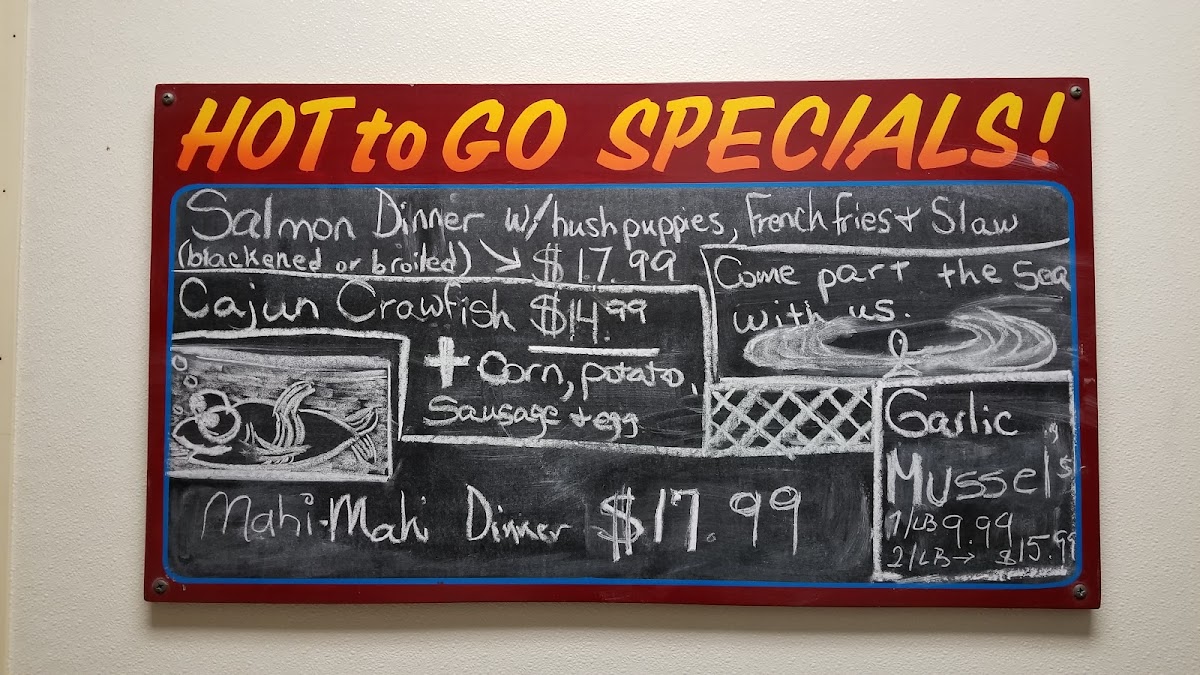 HOT to GO SPECIALS!
Salmon Dinner w/ hushpuppies, French fries + Slaw
(blackened or broiled) → $17.99
Come part the Sea
with us.
Cajun Crawfish $14.99
+ Corn, potato,
Sausage + egg
Garlic
Mussels
1/LB 9.99
2/LB → $15.99
Mahi-Mahi Dinner $17.99